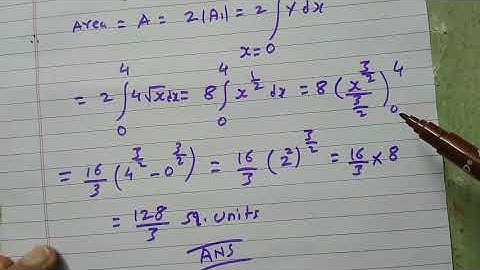 Area = A = 2|A₁| = 2 ∫ y dx
x=0
= 2 ∫₀⁴ 4√x dx = 8 ∫₀⁴ x^(1/2) dx = 8 (x^(3/2) / (3/2))₀⁴
= 16/3 (4^(3/2) - 0^(3/2)) = 16/3 (2²)^(3/2) = 16/3 × 8
= 128/3 sq. units
ANS